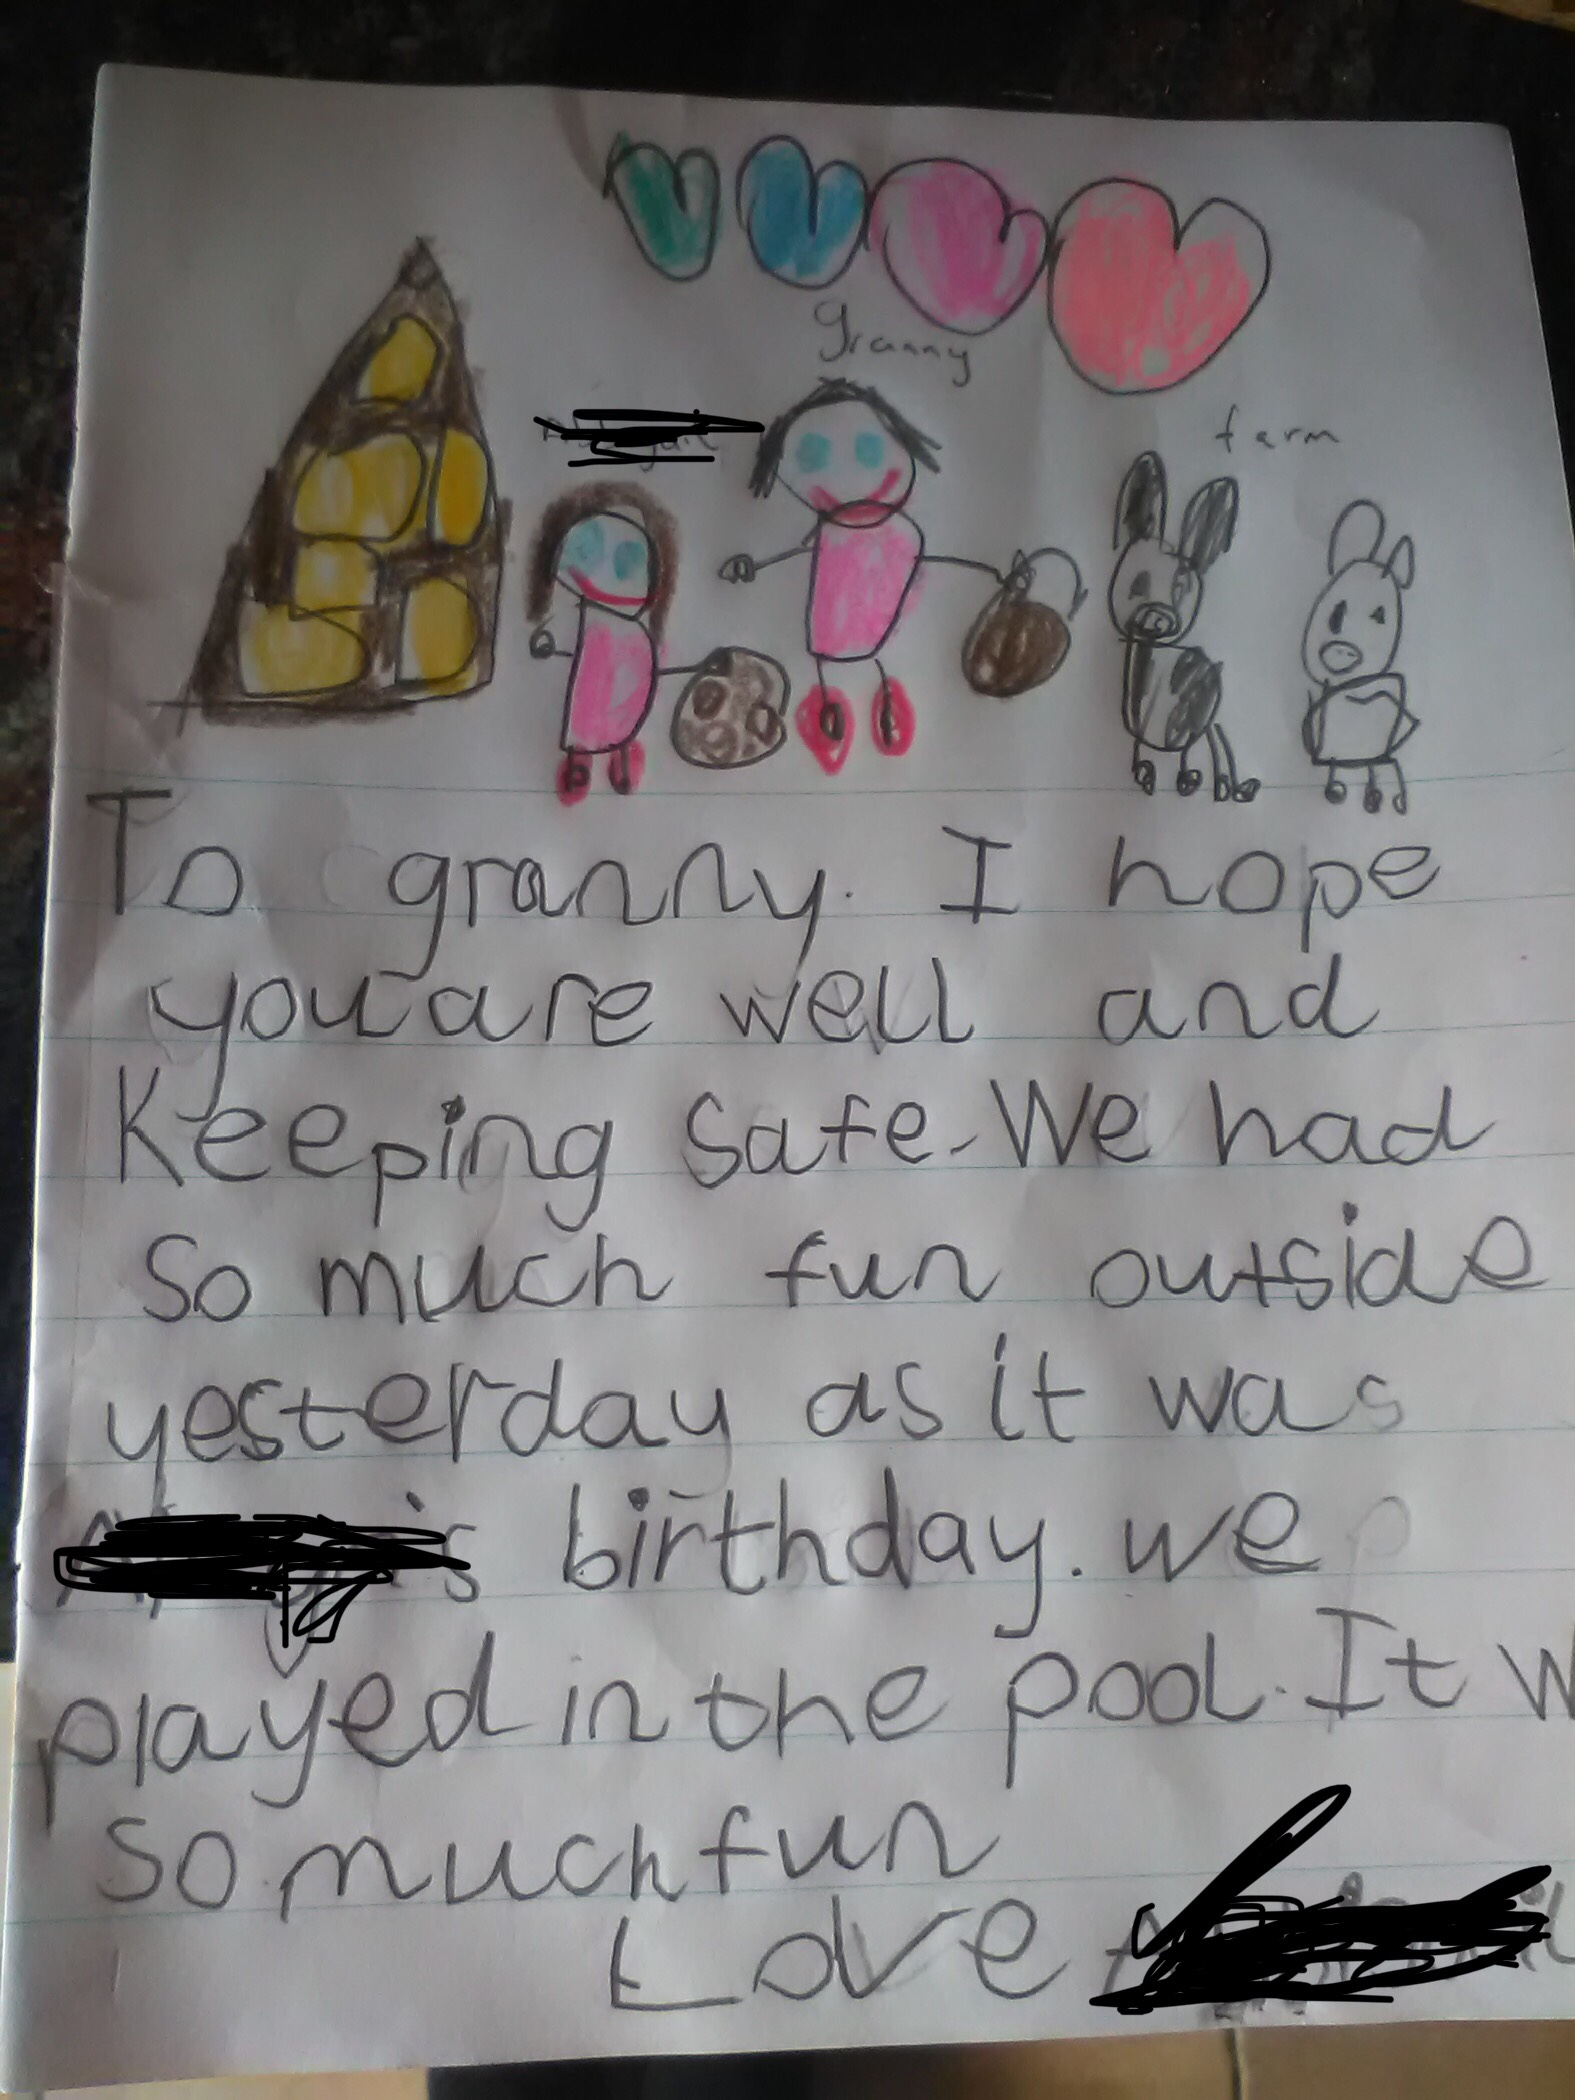 granny
farm
To granny. I hope
you are well and
Keeping safe. We had
So much fun outside
yesterday as it was
's birthday. we
played in the pool. It w
so much fun
Love